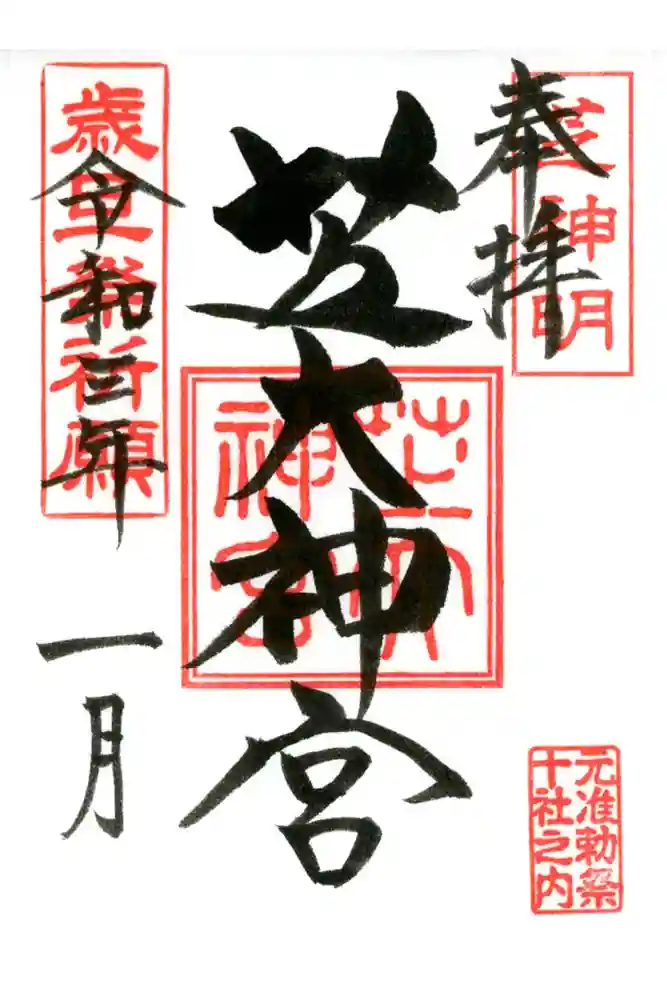 奉拝
芝神明
元准勅祭
十社之内
芝大神宮
芝大
神宮
令和三年
一月